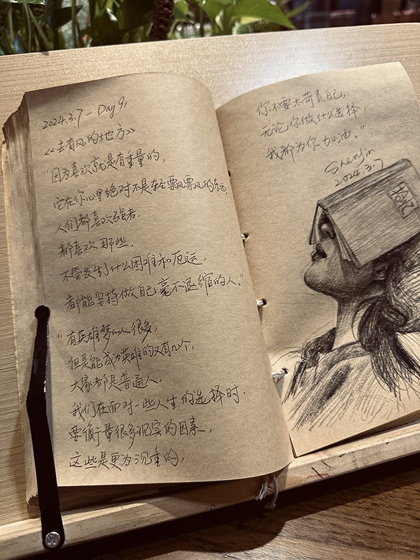 2024.3.7 - Day 9,
《去有风的地方》
"因为喜欢就是有重量的,
它在你心里绝对不是轻飘飘的东西
人们都喜欢强者,
都喜欢那些,
不管发生了什么困难和厄运,
都能坚持做自己毫不退缩的人。"
"有英雄梦的人很多,
但是能成为英雄的没有几个,
大家都是普通人,
我们在面对一些人生的选择时,
要衡量很多现实的因素,
这些是更为沉重的,
你不要太苛责自己,
无论你做什么选择,
我都为你加油。"
2024.3.7